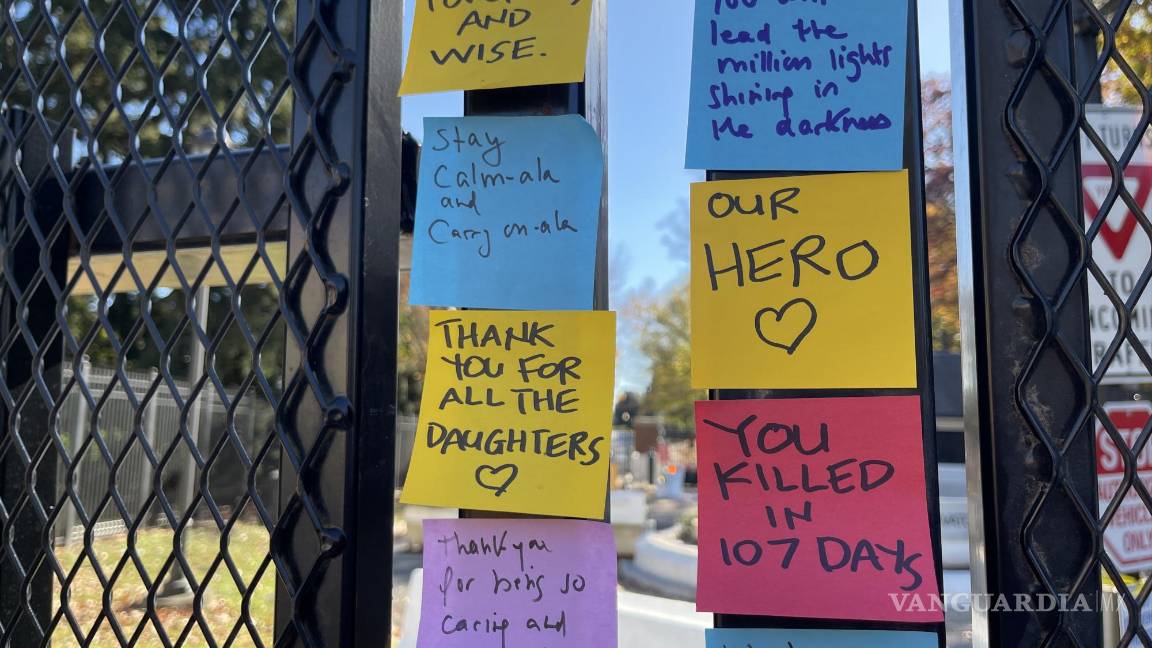 AND
WISE.
Stay
Calm-ala
and
Carry on-ala
THANK
YOU FOR
ALL THE
DAUGHTERS
Thank you
for being so
caring and
lead the
million lights
shining in
the darkness
OUR
HERO
YOU
KILLED
IN
107 DAYS
TO
STOP
ONLY
VANGUARDIA MX